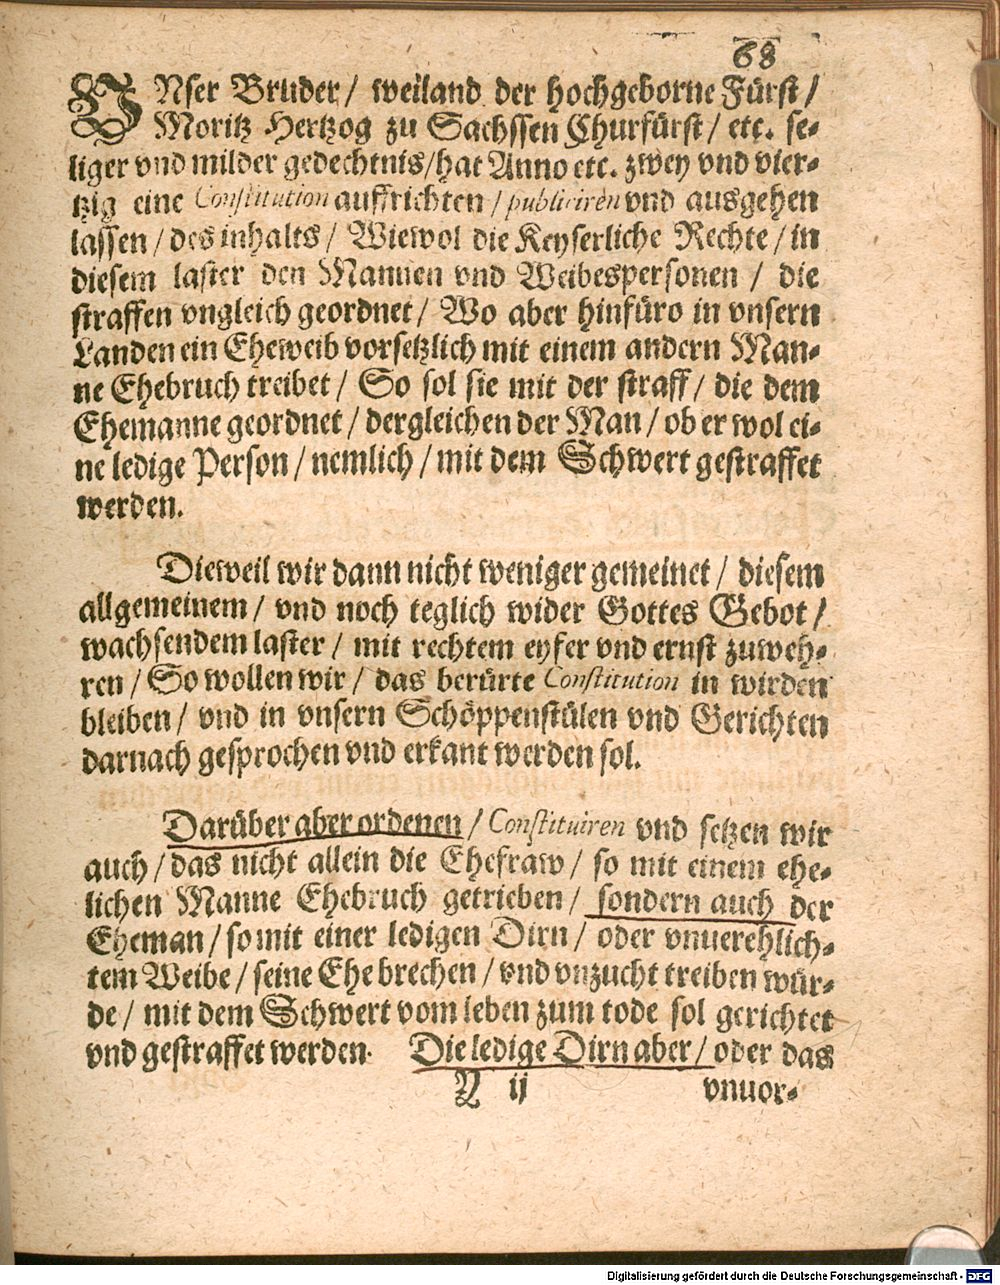 68
VNser Bruder / weiland der hochgeborne Fürst /
Moritz Hertzog zu Sachssen Churfürst / etc. se-
liger vnd milder gedechtnis / hat Anno etc. zwey vnd vier-
tzig eine Constitution auffrichten / publiciren vnd ausgehen
lassen / des inhalts / Wiewol die Keyserliche Rechte / in
diesem laster den Mannen vnd Weibespersonen / die
straffen vngleich geordnet / Wo aber hinfüro in vnsern
Landen ein Eheweib vorsetzlich mit einem andern Man-
ne Ehebruch treibet / So sol sie mit der straff / die dem
Ehemanne geordnet / dergleichen der Man / ob er wol ei-
ne ledige Person / nemlich / mit dem Schwert gestraffet
werden.
Dieweil wir dann nicht weniger gemeinet / diesem
allgemeinem / vnd noch teglich wider Gottes Gebot /
wachsendem laster / mit rechtem eyfer vnd ernst zuweh-
ren / So wollen wir / das berürte Constitution in wirden
bleiben / vnd in vnsern Schöppenstülen vnd Gerichten
darnach gesprochen vnd erkant werden sol.
Darüber aber ordenen / Constituiren vnd setzen wir
auch / das nicht allein die Ehefraw / so mit einem ehe-
lichen Manne Ehebruch getrieben / sondern auch der
Eheman / so mit einer ledigen Dirn / oder vnuerehlich-
tem Weibe / seine Ehe brechen / vnd vnzucht treiben wür-
de / mit dem Schwert vom leben zum tode sol gerichtet
vnd gestraffet werden. Die ledige Dirn aber / oder das
N ij vnuor-
Digitalisierung gefördert durch die Deutsche Forschungsgemeinschaft - DFG